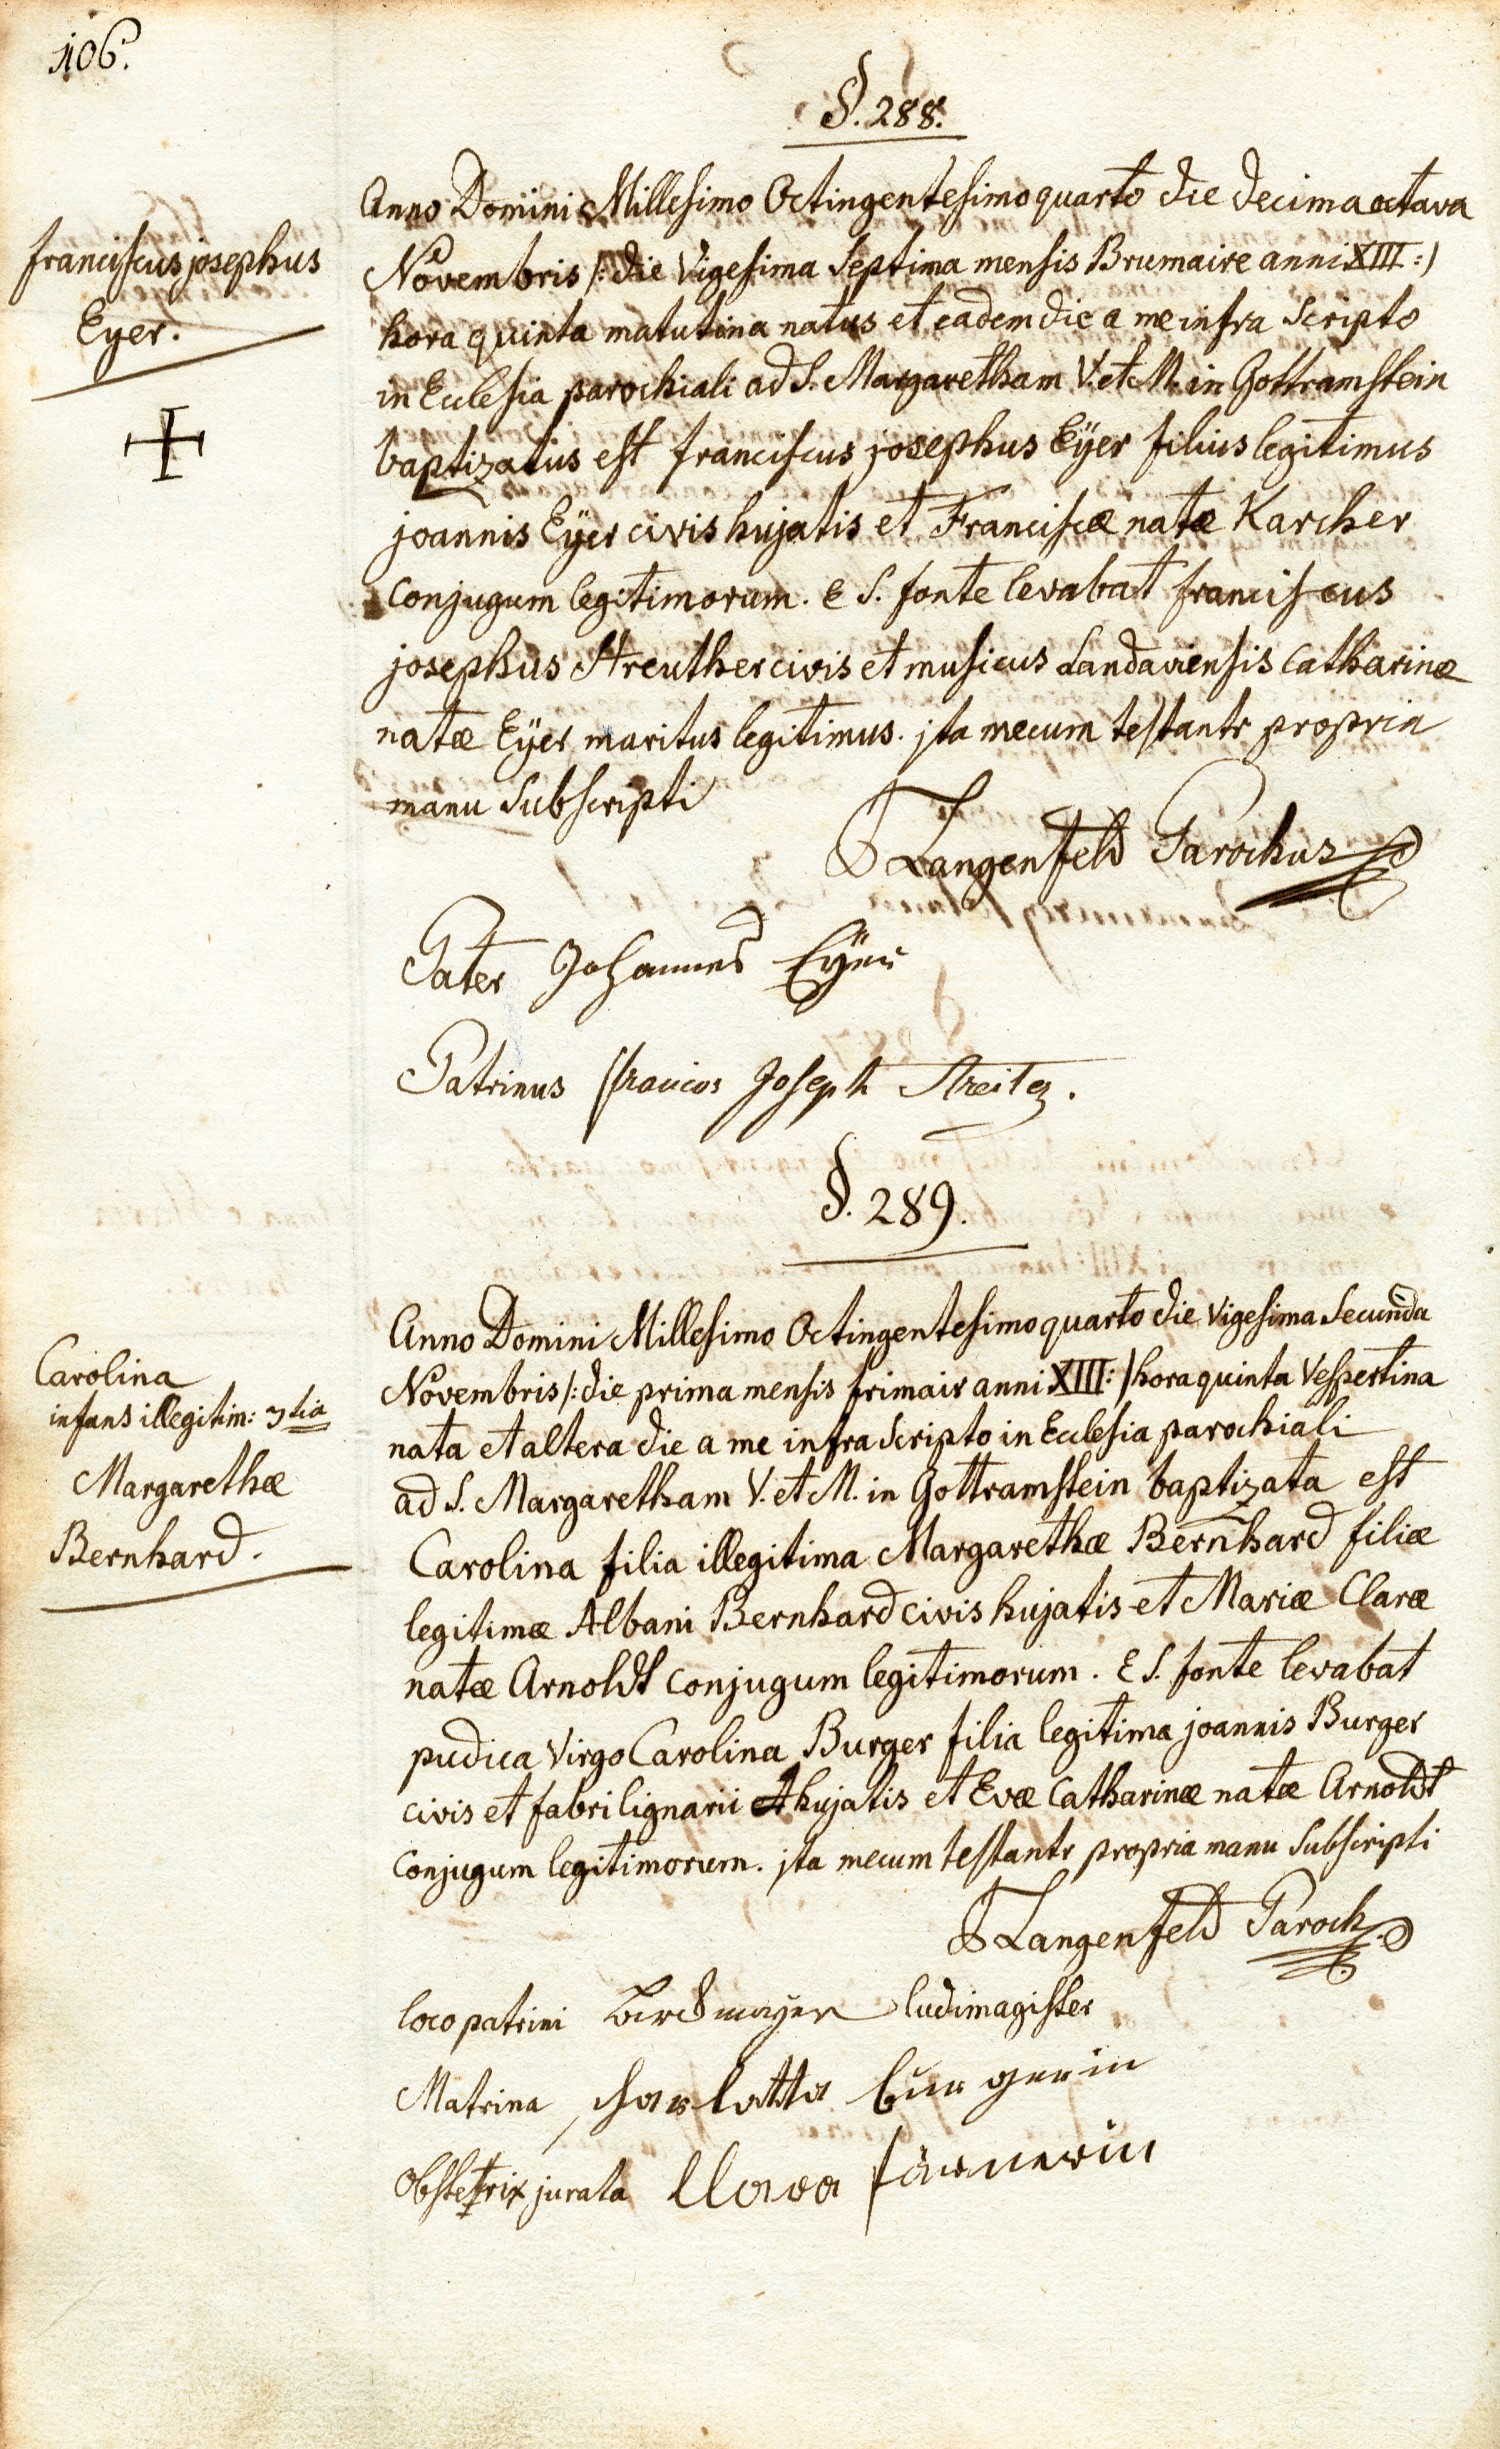 106.
§. 288.
Franciscus josephus
Eyer.
Anno Domini Millesimo Octingentesimo quarto die decima octava
Novembris /: die Vigesima Septima mensis Brumaire anni XIII :/
hora quinta matutina natus et eadem die a me infra Scripto
in Ecclesia parochiali ad S. Margaretham V. et M. in Gottramstein
baptizatus est franciscus josephus Eÿer filius legitimus
joannis Eÿer civis hujatis et Franciscæ natæ Karcher
conjugum legitimorum. E S. fonte levabat franciscus
josephus Streuther civis et musicus Landaviensis Catharinæ
natæ Eÿer maritus legitimus. jta mecum testantr propria
manu Subscripti
Langenfeld Parochus
Pater Johannes Eÿer
Patrinus Joseph Streiter.
§. 289.
Carolina
infans illegitim: 3tia
Margarethæ
Bernhard.
Anno Domini Millesimo Octingentesimo quarto die Vigesima Secunda
Novembris /: die prima mensis frimair anni XIII :/ hora quinta Vespertina
nata et altera die a me infra Scripto in Ecclesia parochiali
ad S. Margaretham V. et M. in Gottramstein baptizata est
Carolina filia illegitima Margarethæ Bernhard filiæ
legitimæ Albani Bernhard civis hujatis et Mariæ Claræ
natæ Arnoldt conjugum legitimorum. E S. fonte levabat
pudica Virgo Carolina Burger filia legitima joannis Burger
civis et fabri lignarii hujatis et Evæ Catharinæ natæ Arnoldt
conjugum legitimorum. jta mecum testantr propria manu Subscripti
Langenfeld Paroch.
loco patrini ludimagister
Matrina charlatta burgerin
Obstetrix jurata